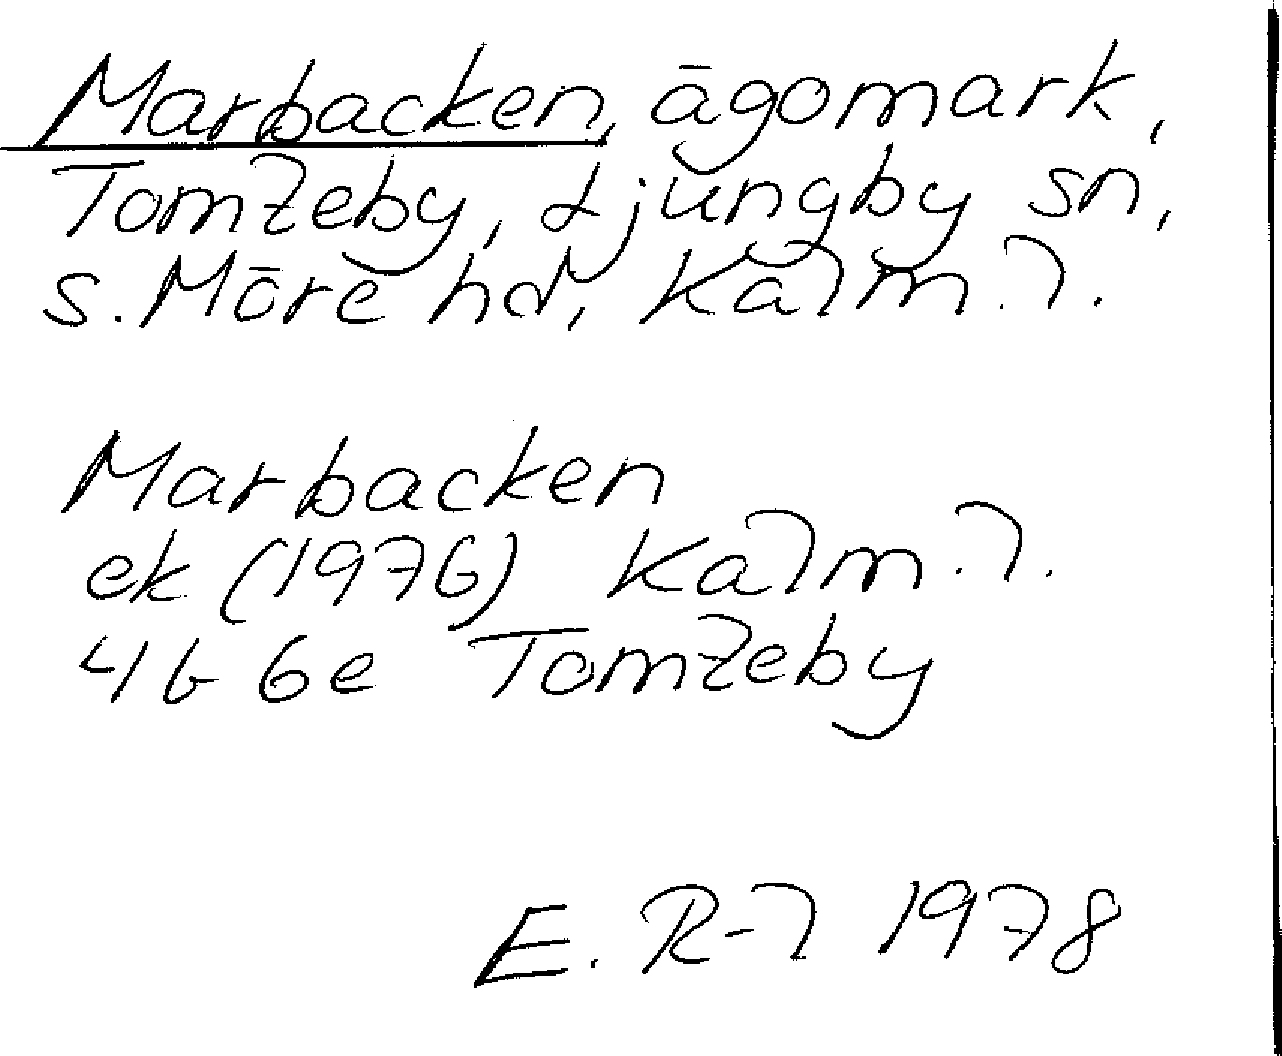 Marbacken, ägomark,
Tomteby, Ljungby sn,
S. Möre hd, Kalm. l.
Marbacken
ek (1976) Kalm. l.
4G 6e Tomteby
E. R-l 1978